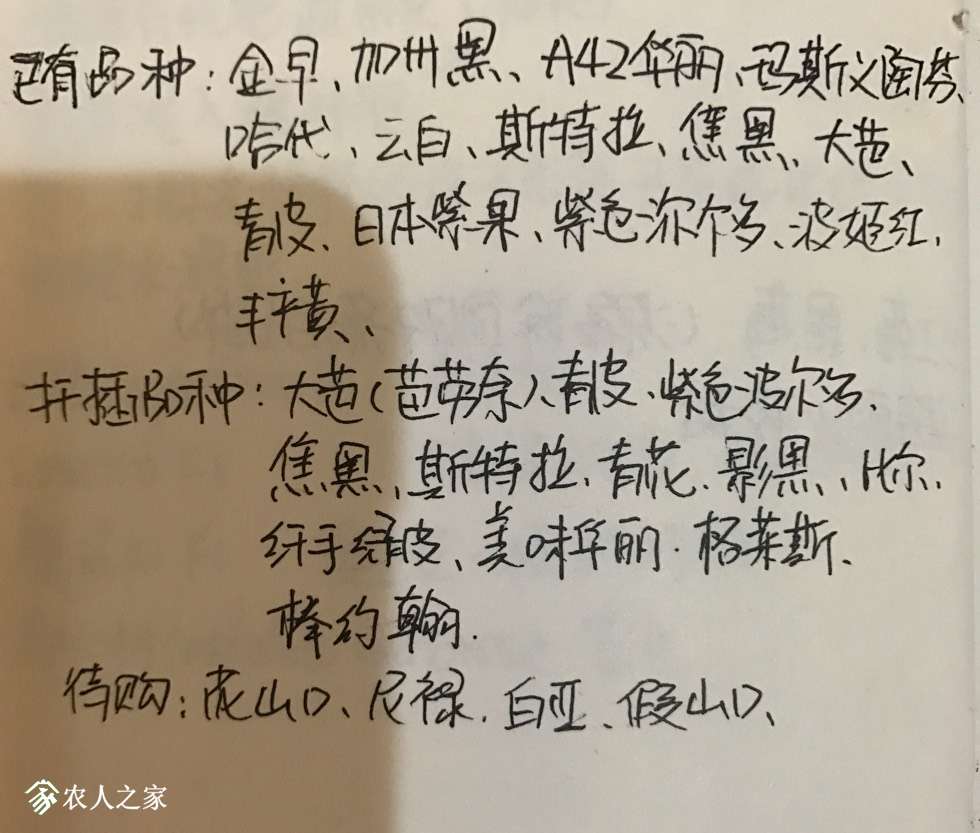 已有品种：金早、加州黑、A42华丽、玛斯义陶芬、
哈代、云白、斯特拉、焦黑、大芭、
青皮、日本紫果、紫色波尔多、波姬红、
丰产黄、
扦插品种：大芭(芭劳奈)、青皮、紫色波尔多、
焦黑、斯特拉、青花、影黑、
纤手绿皮、美味华丽、格莱斯、
棒约翰.
待购：虎山口、尼禄、白亚、假山口、
农人之家